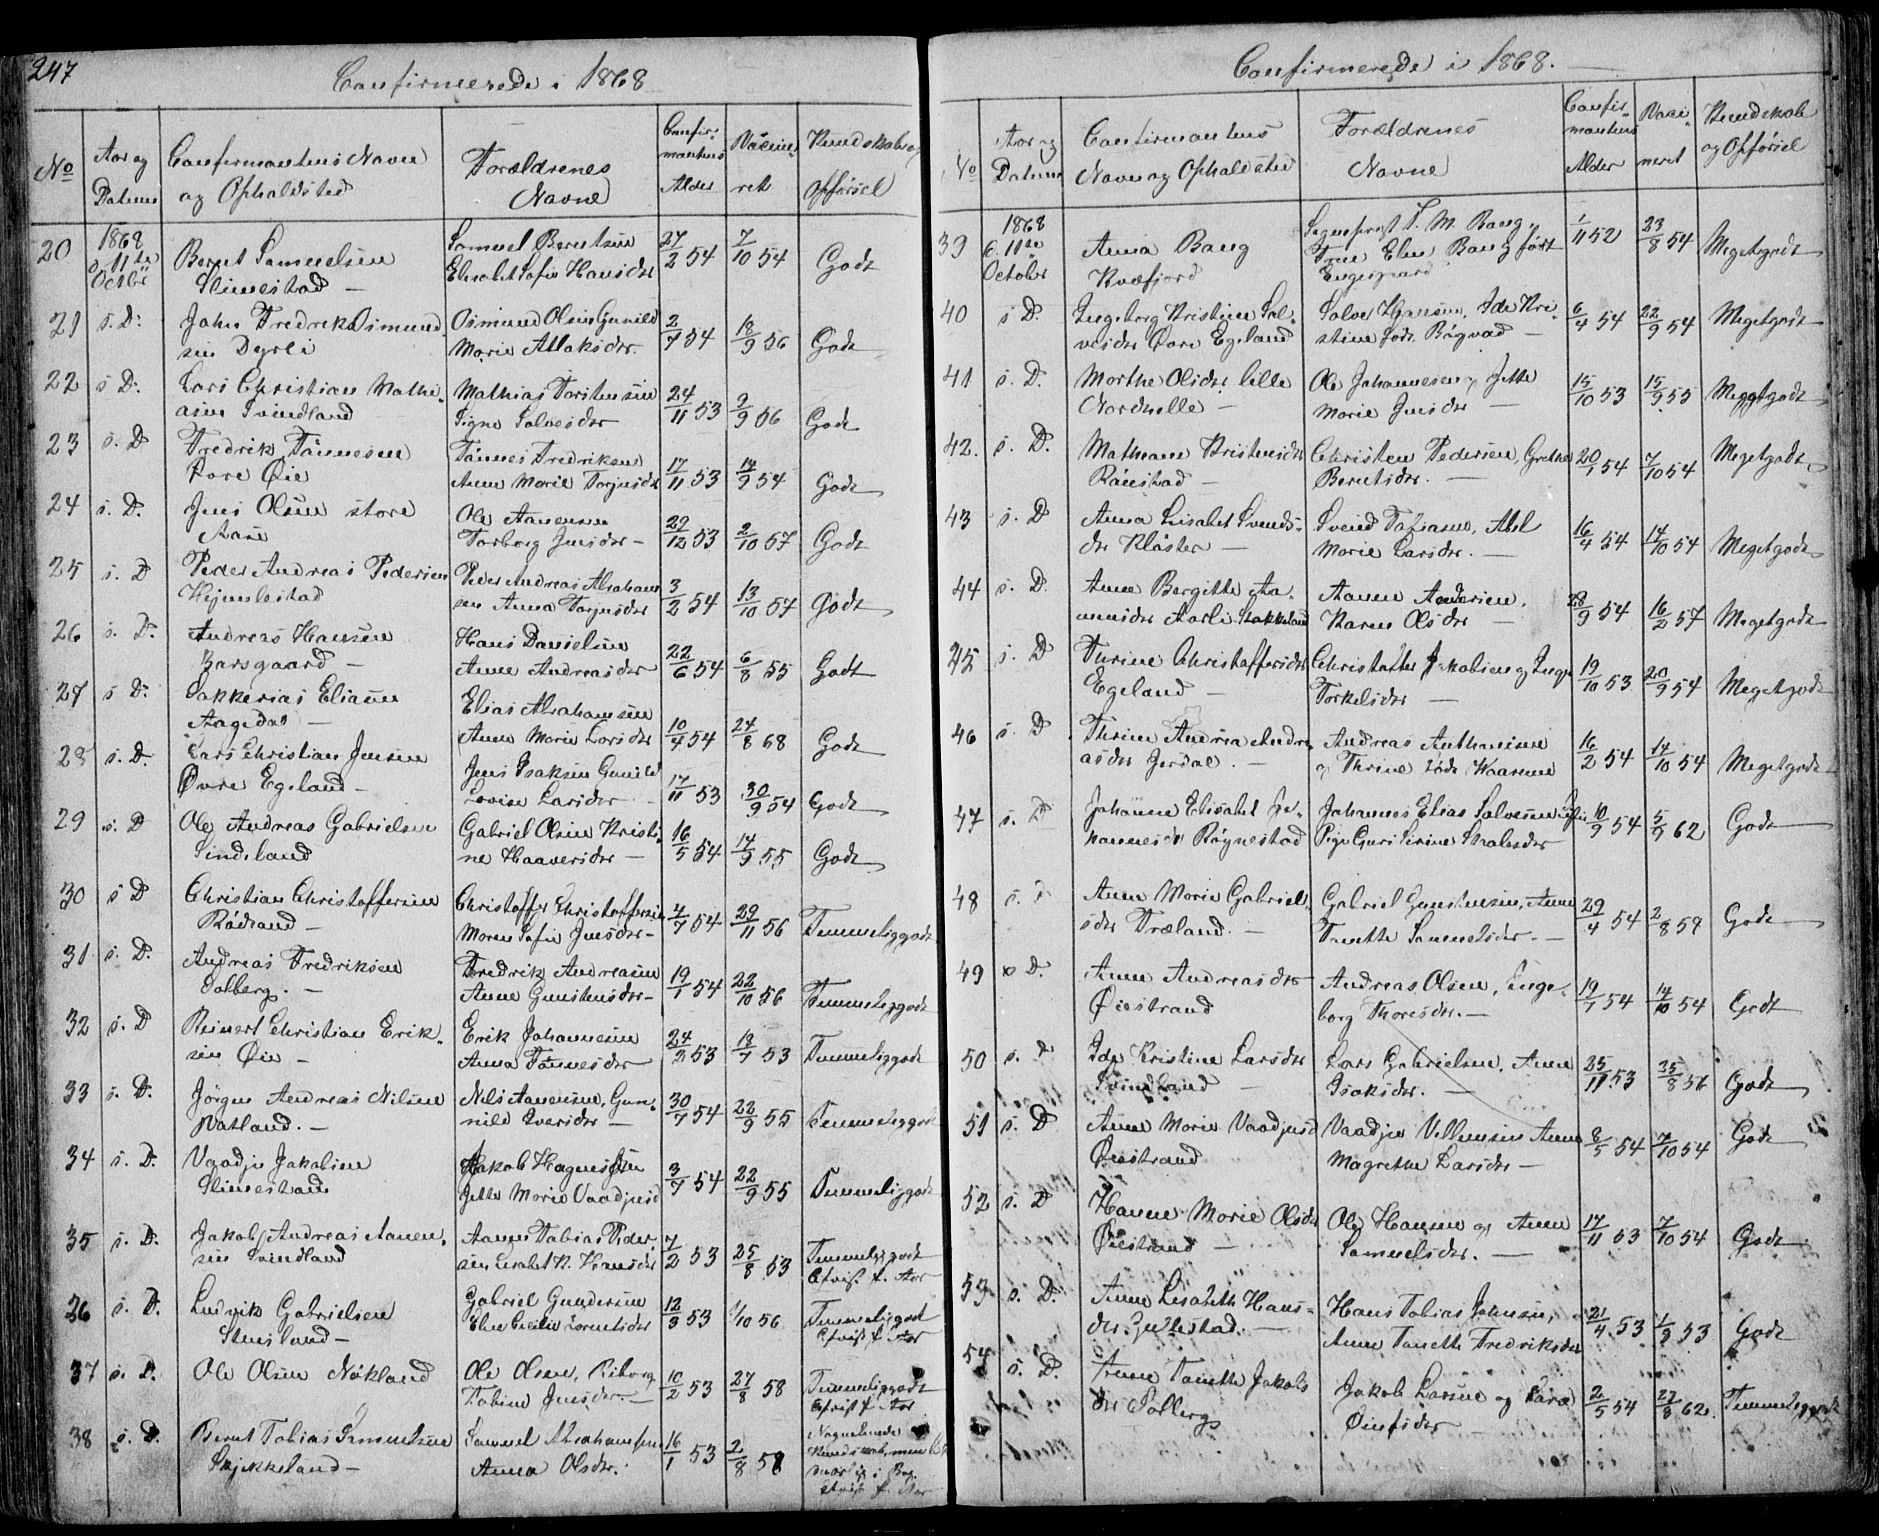 247
Confirmerede i 1868
No
Aar og
Datum
Confirmantens Navn
og Opholdsted
Forældrenes
Navne
Confir-
mantens
Alder
Vaccine-
ret
Kundskaber og
Opførsel
20
1868
d. 11te
Octbr
Bernt Samuelsen
Slimestad —
Samuel Berntsen
Elisabet Sofie Hansdtr
27/2 54
7/10 54
Godt
21
s. D.
John Fredrik Osmund-
sen Dyrli
Osmund Olsen Gunild
Marie Atlaksdtr.
2/7 54
18/9 56
Godt
22
s D.
Lars Christian Mathi-
asen Svindland
Mathias Torstensen
Signe Salvesdtr
24/11 53
9/9 56
Godt
23
s. D
Fredrik Tønnesen
Øvre Øie
Tønnes Fredriksen
Anne Marie Torjusdtr
17/11 53
14/9 54
Godt
24
s. D.
Jens Olsen store
Aase
Ole Aanensen
Torborg Jensdtr —
29/12 53
2/10 57
Godt
25
s. D
Peder Andreas Pedersen
Hejmlestad
Peder Andreas Abraham-
sen Anna Torjusdtr
3/2 54
13/10 57
Godt
26
s. D.
Andreas Hansen
Barsgaard —
Hans Danielsen
Anne Andreasdtr
22/6 54
6/8 55
Godt
27
s D.
Sakkerias Eliasen
Aagedal —
Elias Abrahamsen
Anne Marie Larsdtr
10/4 54
24/8 68
Godt
28
s. D.
Lars Christian Jensen
Øvre Egeland —
Jens Isaksen Gunild
Lovise Larsdtr —
17/11 53
30/9 54
Godt
29
s. D
Ole Andreas Gabrielsen
Sindland
Gabriel Olsen Kristi-
ne Haaversdtr —
16/5 54
14/9 55
Godt
30
s D
Christian Christoffersen
Rødsand —
Christoffer Christoffersen
Maren Sofie Jensdtr —
4/7 54
29/11 56
Temmeliggodt
31
s. D.
Andreas Fredriksen
Solberg. —
Fredrik Andreasen
Anne Gunstensdtr —
19/1 54
22/10 56
Temmeliggodt
32
s. D
Reinert Christian Erik-
sen Øie —
Erik Johannesen
Anna Tønnesdtr
24/3 53
18/7 53
Temmeliggodt
33
s. D.
Jørgen Andreas Nilsen
Watland. —
Nils Aanensen, Gun-
nild Iversdtr —
30/7 54
22/9 55
Temmeliggodt
34
s. D.
Vaadju Jakobsen
Slimestad
Jakob Hagnesen
Jette Marie Vaadjusd
3/7 54
22/9 55
Temmeliggodt
35
s. D.
Jakob Andreas Aanen-
sen Svindland
Aanen Tobias Peder-
sen Lisabet K. Hansdtr
7/2 53
25/8 53
Temmeliggodt
Afvist f. Aar
36
s. D.
Ludvik Gabrielsen
Stusland —
Gabriel Gundersen
Elen Cecilie Lorentsdtr
12/3 53
1/10 56
Temmeliggodt
Afvist f. Aar
37
s. D.
Ole Olsen Nøkland
Ole Olsen, Riborg
Tobine Jensdtr. —
10/2 53
27/8 58
Temmeliggodt
Afvist f. Aar
38
s. D.
Bernt Tobias Samuelsen
Skjekkeland —
Samuel Abrahamsen
Anna Olsdtr.
16/1 53
2/8 58
Nogenlunde
Kundskab, men
i Bog
Afvist f. Aar
Confirmerede i 1868.
No
Aar og
Datum
Confirmantens
Navn og Opholdsted
Forældrenes
Navne
Confir-
mantens
Alder
Vacci-
neret
Kundskab
og Opførsel
39
1868
d. 11te
October
Anna Bang
Kvæfjord
Sogneprest T. M. Bang,
Frue Elen Bang født
1/11 52
23/8 54
Megetgodt
40
s D.
Ingeborg Kristine Sal-
vesdtr Øvre Egeland
Salve Hansen, Ida Kri-
stine født Bøgvad —
6/4 54
22/9 54
Megetgodt
41
s. D.
Marthe Olsdtr lille
Nordhelle —
Ole Johannesen og Jette
Marie Jensdtr —
15/10 53
15/9 55
Megetgodt
42.
s. D.
Mathane Kristensdtr
Røiestad —
Christen Pedersen, Grethe
Berntsdtr. —
20/1 54
7/10 54
Megetgodt
43
s. D
Anna Lisabet Svends-
dtr Kloster —
Svend Tobiasen, Abel
Marie Larsdtr. —
16/4 54
14/10 54
Megetgodt
44
s. D.
Anne Bergitte Aa-
nensdtr Aarli
Aanen Andersen,
Karen Olsdtr —
28/9 54
16/2 57
Megetgodt
45
s. D
Thrine Christoffersdtr
Egeland —
Christoffer Jakobsen og Inge
Torkelsdtr —
19/10 53
20/9 54
Megetgodt
46
s. D
Thrine Andrea Andre-
asdtr Jerdal. —
Andreas Anthonisen
og Thrine født Kaarene
16/2 54
14/10 54
Megetgodt
47
s. D
Johanne Elisabet Jo-
hannesdtr Røynestad
Johannes Elias Salvesen
Pige Guri Serine
10/9 54
5/9 62
Godt
48
s.
Anne Marie Gabriels-
dtr Træland. —
Gabriel Gunstensen, Anne
Tanette Samuelsdtr. —
29/4 54
2/8 59
Godt
49
D.
Anne Andreasdtr
Øiestrand
Andreas Olsen, Inge-
borg Thoresdtr. —
19/7 54
14/10 54
Godt
50
s. D
Ida Kristine Larsdtr
Svindland —
Lars Gabrielsen, Anne
Isaksdtr. —
25/11 53
25/8 56
Godt
51
s. D
Anne Marie Vaadjusd
Øiestrand
Vaadju Villumsen Anne
Magrethe Larsdtr —
8/5 54
7/10 54
Godt
52
s. D
Hanne Marie Olsdtr
Øiestrand —
Ole Hansen og Anne
Samuelsdtr. —
17/11 53
7/10 54
Godt
53
s. D.
Anne Lisabeth Hans-
dtr. —
Hans Tobias Johnsen,
Anne Tanette Fredriksdtr
21/4 53
1/9 53
Godt
54
s. D.
Anne Tanette Jakobs-
dtr Solberg
Jakob Larsen og Sara
2/5 54
27/8 62.
Temmeliggodt